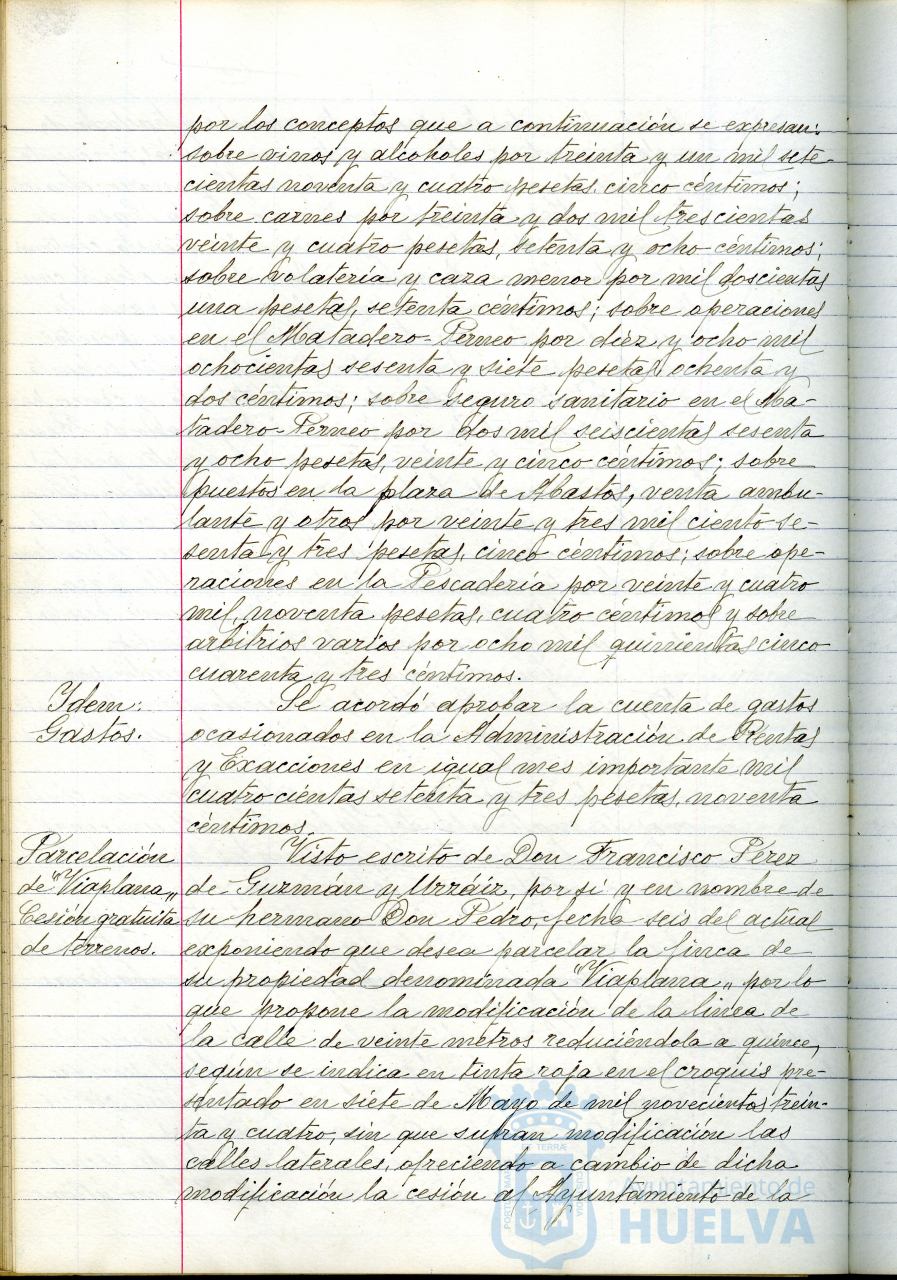 por los conceptos que a continuación se expresan:
sobre vinos y alcoholes por treinta y un mil sete-
cientas noventa y cuatro pesetas, cinco céntimos;
sobre carnes por treinta y dos mil trescientas
veinte y cuatro pesetas, setenta y ocho céntimos;
sobre volatería y caza menor por mil doscientas
una pesetas, setenta céntimos; sobre operaciones
en el Matadero-Perneo por diez y ocho mil
ochocientas sesenta y siete pesetas, ochenta y
dos céntimos; sobre seguro sanitario en el Ma-
tadero Perneo por dos mil seiscientas sesenta
y ocho pesetas, veinte y cinco céntimos; sobre
puestos en la plaza de Abastos, venta ambu-
lante y otros por veinte y tres mil ciento se-
senta y tres pesetas, cinco céntimos; sobre ope-
raciones en la Pescadería por veinte y cuatro
mil, noventa pesetas, cuatro céntimos y sobre
arbitrios varios por ocho mil quinientas cinco
cuarenta y tres céntimos.
Ydem:
Gastos.
Se acordó aprobar la cuenta de gastos
ocasionados en la Administración de Rentas
y Exacciones en igual mes importante mil
cuatrocientas setenta y tres pesetas, noventa
céntimos.
Parcelación
de "Viaplana"
Cesión gratuita
de terrenos.
Visto escrito de Don Francisco Pérez
de Guzmán y Urzáiz, por sí y en nombre de
su hermano Don Pedro, fecha seis del actual
exponiendo que desea parcelar la finca de
su propiedad denominada "Viaplana" por lo
que propone la modificación de la linea de
la calle de veinte metros reduciéndola a quince,
según se indica en tinta roja en el croquis pre-
sentado en siete de Mayo de mil novecientos trein-
ta y cuatro, sin que sufran modificación las
calles laterales, ofreciendo a cambio de dicha
modificación la cesión al Ayuntamiento de la
Ayuntamiento de
HUELVA